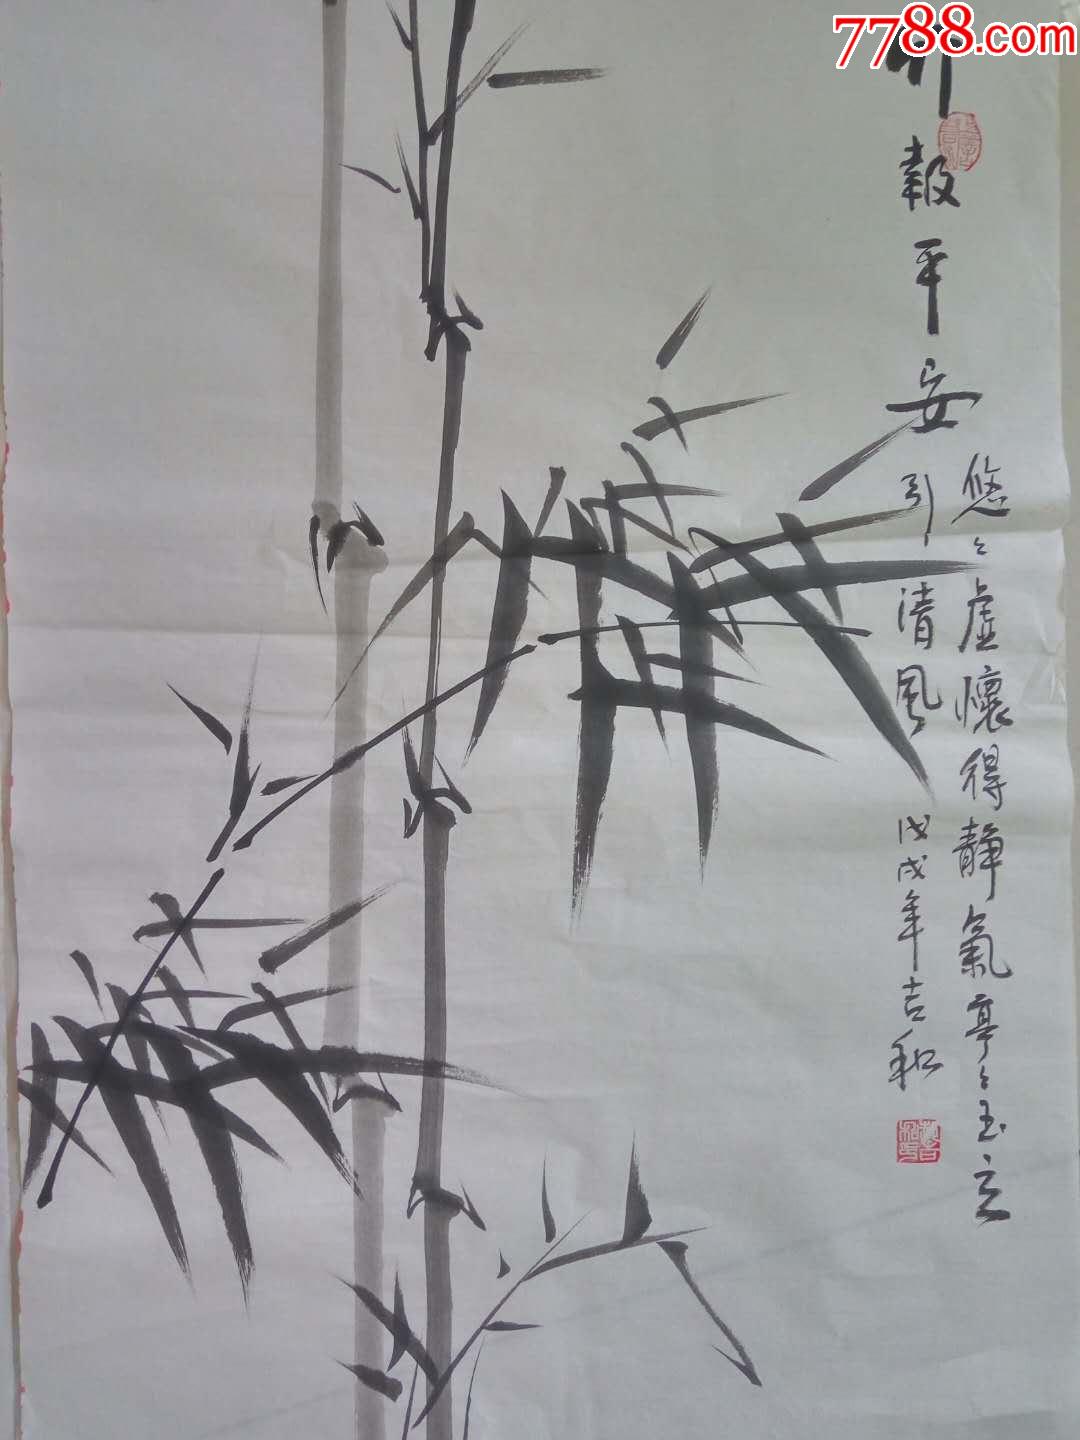 7788.com
竹報平安
悠〻虛懷得靜氣亭〻玉立
引清風
戊戌年吉和